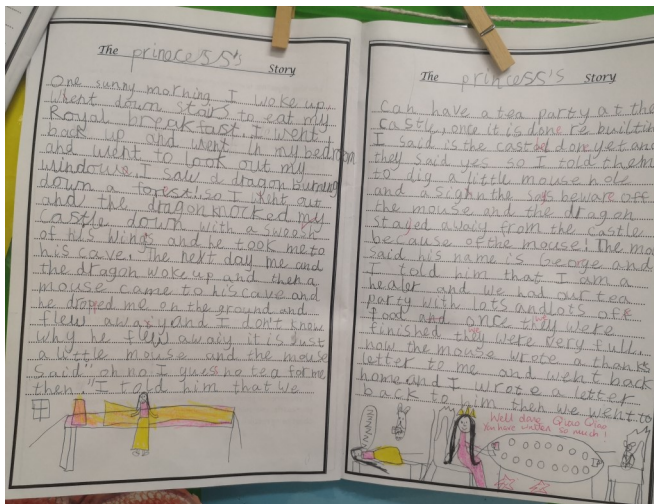 The princess's Story
One sunny morning I woke up.
Whent down stars to eat my
Royal breakfast. I went
back up and went in my bedroom
and went to look out my
windowe. I saw a dragon burning
down a forest! so I whent out
and the dragon knocked my
castle down with a sweesh
of his wings and he took me to
his cave. The next day me and
the dragon woke up and then a
mouse came to his cave and
he dropped me on the ground and
flew awaiy and I don't know
why he flew awaiy it is just
a little mouse and the mouse
said "oh no I guess no tea for me
then." I told him that we
The princess's Story
can have a tea party at the
castle, once it is done re builtin
I said is the castel done yet and
they said yes so I told them
to dig a little mouse hole
and a sighn the says beware off
the mouse and the dragon
stayed awaiy from the castle
because of the mouse! The mo
said his name is George and
I told him that I am a
healer and we had our tea
party with lots and lots off
food and once they were
finished they were very full.
now the mouse wrote a thanks
letter to me and went back
home and I wrote a letter
back to him then we went to
Well done, Qiao Qiao
You have written so much!